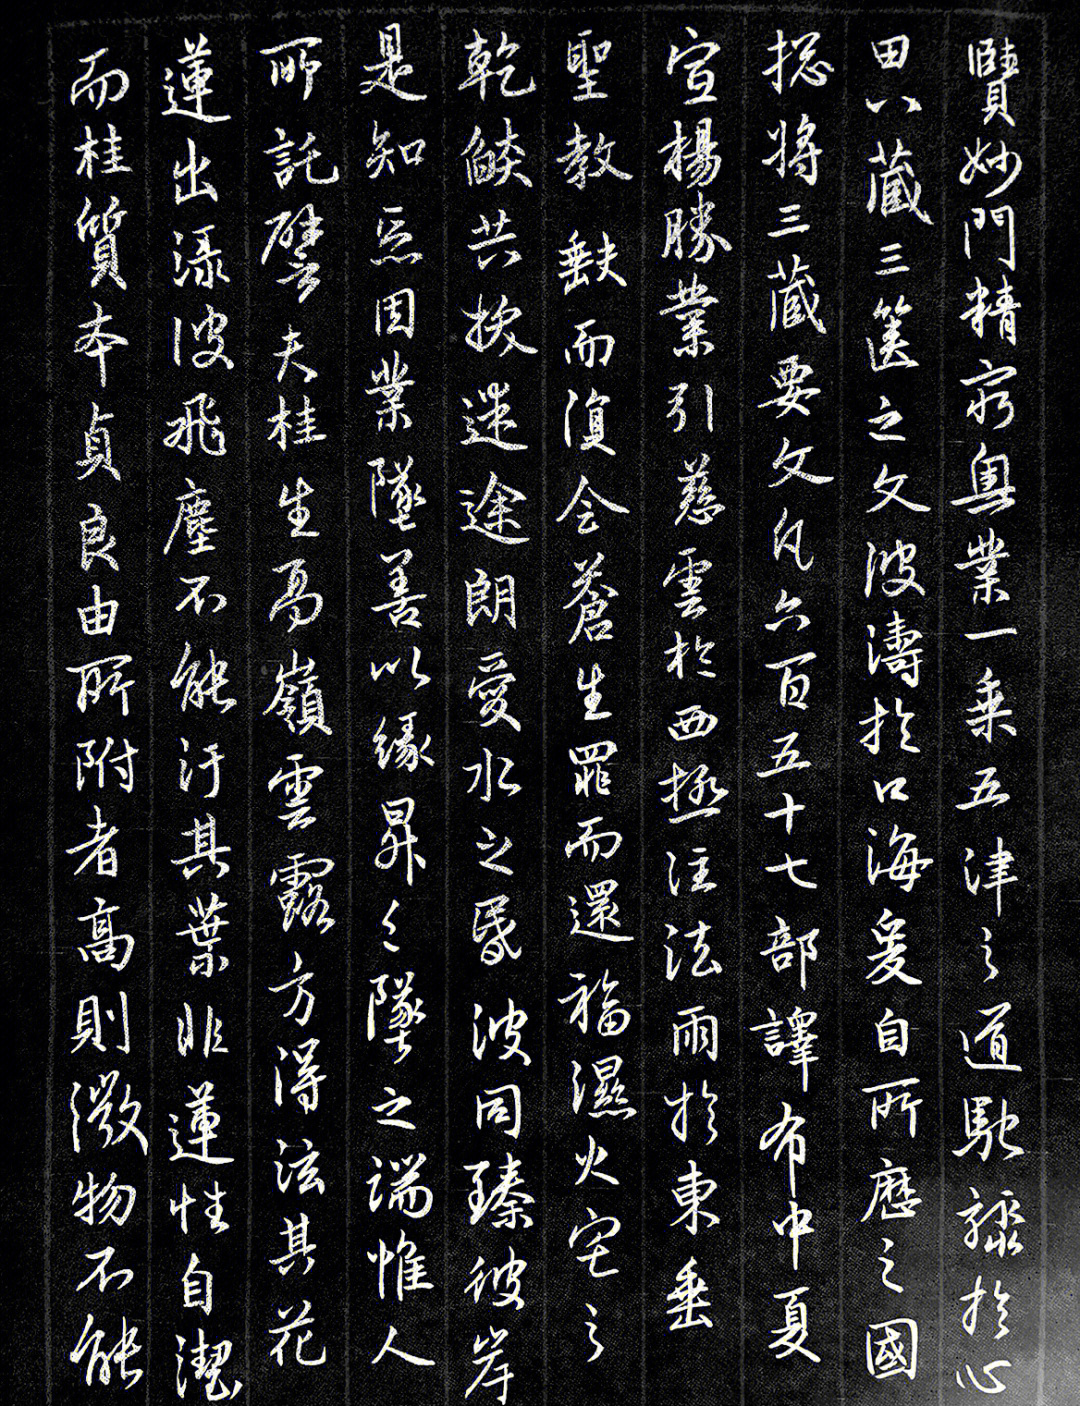 賾妙門精窮奧業一乘五津之道馳驟於心
田八藏三篋之文波濤於口海爰自所歷之國
揔將三藏要文凡六百五十七部譯布中夏
宣揚勝業引慈雲於西極注法雨於東垂
聖教缺而復全蒼生罪而還福濕火宅之
乾燄共拔迷途朗愛水之昏波同臻彼岸
是知惡因業墜善以緣昇々墜之端惟人
所託譬夫桂生高嶺雲露方得泫其花
蓮出淥波飛塵不能汙其葉非蓮性自潔
而桂質本貞良由所附者高則微物不能